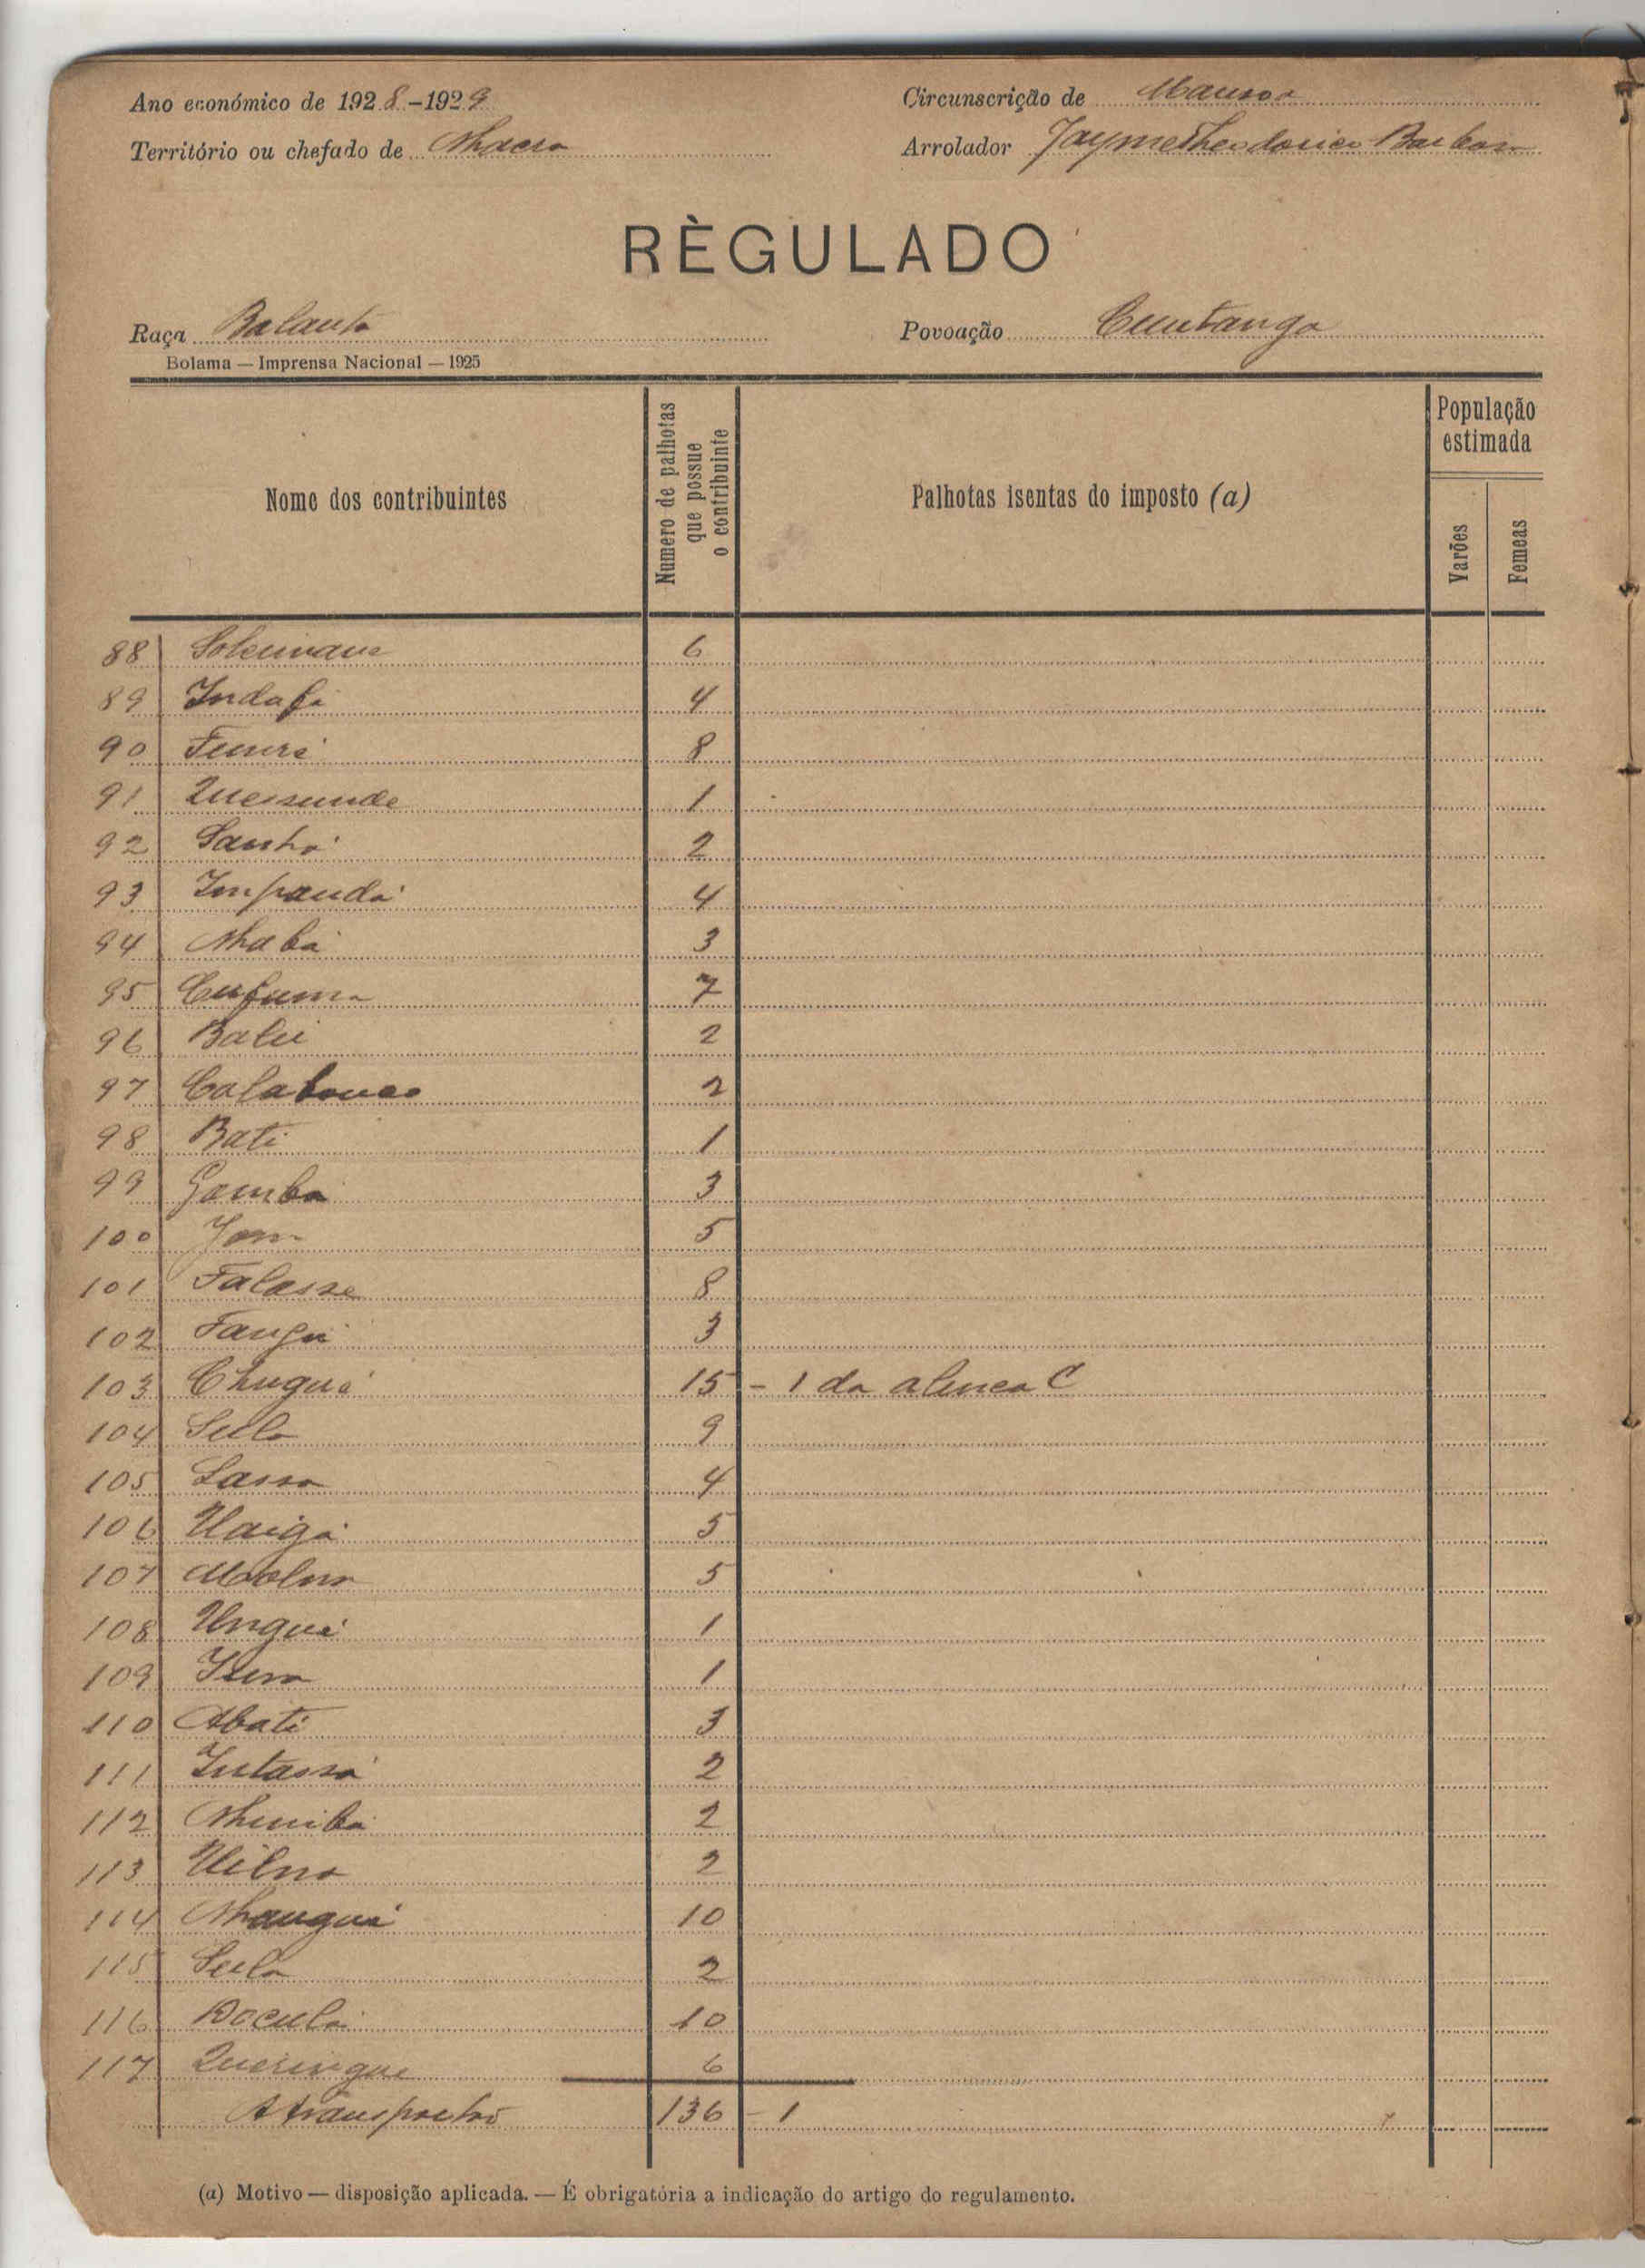 Ano económico de 1928-1929
Circunscrição de Mansoa
Território ou chefado de Nhacra
Arrolador Jayme Theodorico Barbosa
RÈGULADO
Raça Balanta
Povoação Cuntanga
Bolama — Imprensa Nacional — 1925
Nome dos contribuintes
Numero de palhotas que possue o contribuinte
Palhotas isentas do imposto (a)
População estimada
Varões
Femeas
88 6
89 Indafá 4
90 8
91 1
92 Sanhá 2
93 Impandá 4
94 Nhabá 3
95 Cufuma 7
96 2
97 2
98 Bati 1
99 Gomba 3
100 5
101 Falasse 8
102 3
103 Chugué 15 - 1 da alinea C
104 9
105 4
106 Uaigá 5
107 5
108 Ungué 1
109 1
110 Abati 3
111 Intassá 2
112 2
113 Uilna 2
114 Nhangué 10
115 2
116 Doculá 10
117 Queringue 6
A transportar 136 - 1
(a) Motivo — disposição aplicada. — É obrigatória a indicação do artigo do regulamento.